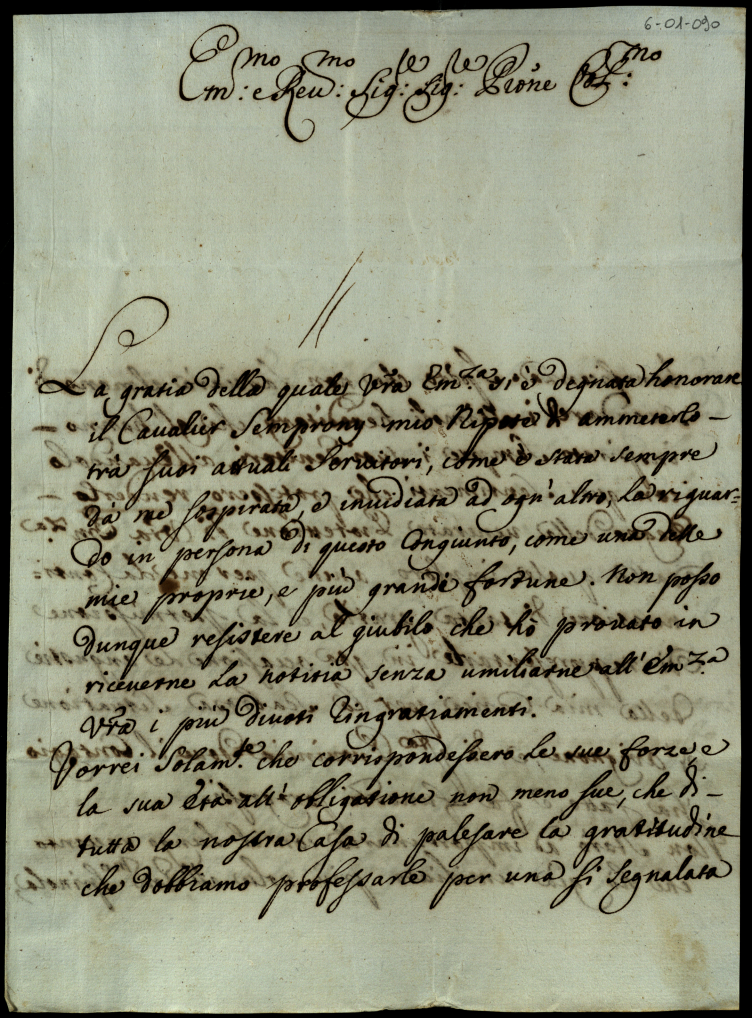 6-01-090
Em:mo e Reu:mo Sig:re Sig:re Prone Col:mo
La gratia della quale Vra Em.za si è degnata honorare
il Caualier Semprony mio Nipote di ammeterlo
trà suoi attuali Seruitori, come è stata sempre
dà me sospirata, e inuidiata ad ogn'altro, la riguar=
do in persona di questo Congiunto, come una delle
mie proprie, e più grandi fortune. Non posso
dunque resistere al giubilo, che hò prouato in
riceuerne la notitia senza umiliarne all'Em.za
Vra i più diuoti ringratiamenti.
Vorrei Solam.te che corrispondessero le sue forze, e
la sua età all'obligatione non meno sue, che di
tutta la nostra Casa di palesare la gratitudine
che dobbiamo professarle per una si segnalata